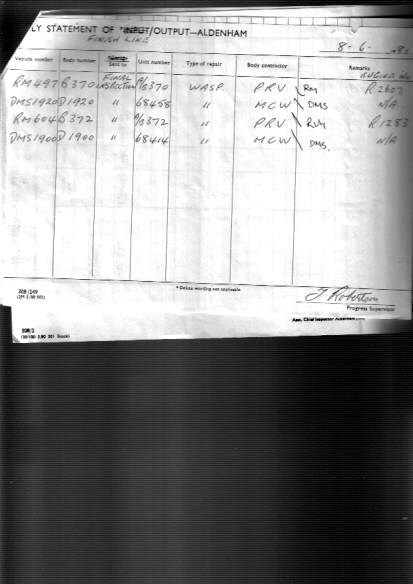 LY STATEMENT OF *INPUT/OUTPUT—ALDENHAM
FINISH LINE
8-6-
Vehicle number Body number Sent to Unit number Type of repair Body contractor Remarks
ENGINE No
RM497 B370 FINAL INSPECTION 370 WASP PRV RM R2607
DMS1920 D1920 " 68458 " MCW DMS N/A
RM604 B372 " 372 " PRV RM R1283
DMS1900 D1900 " 68414 " MCW DMS. N/A
* Delete wording not applicable
308/249
J Robertson
Progress Supervisor
Asst. Chief Inspector Aldenham
308/2